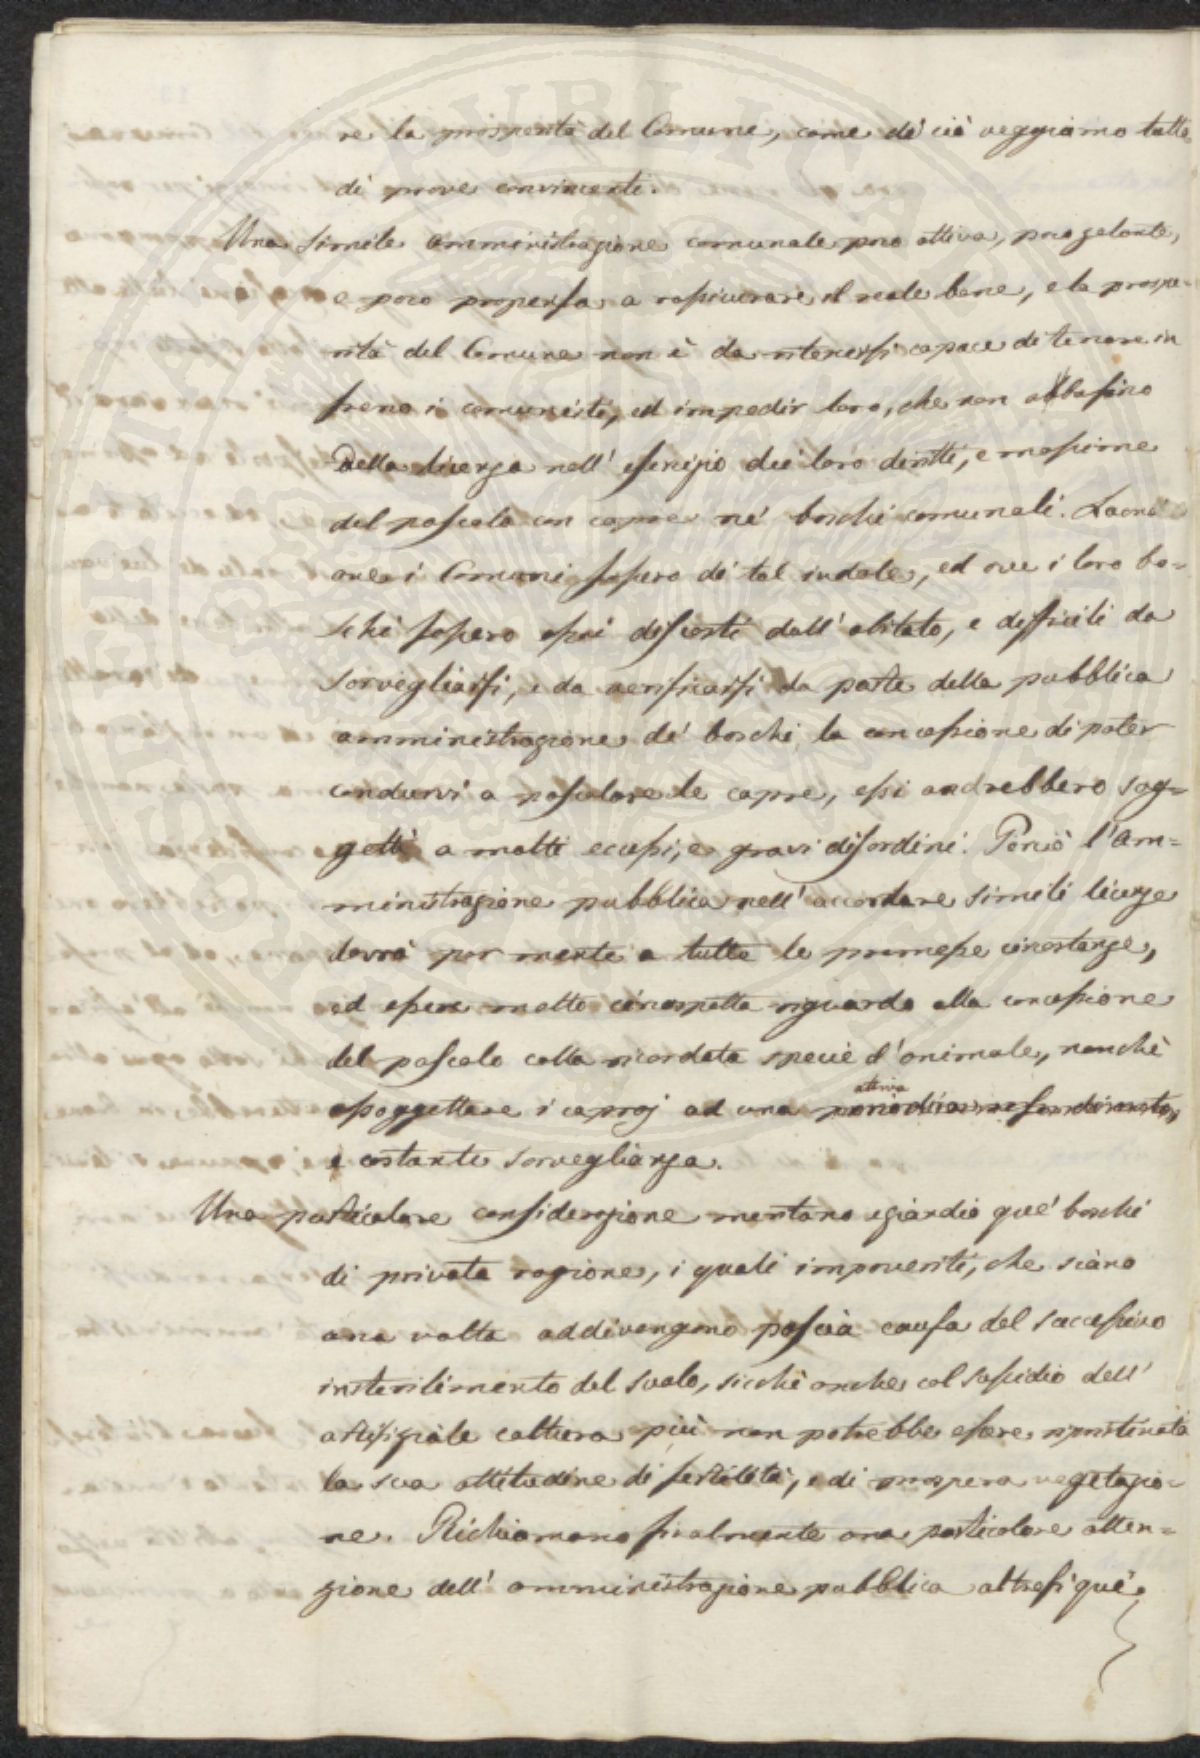 re la prosperità del Comune, come di ciò veggiamo tutto
dì prove convincenti.
Una simile amministrazione comunale poco attiva, poco zelante,
e poco propensa a rassicurare il reale bene, e la prospe=
rità del Comune non è da ritenersi capace di tenere in
freno i comunisti, ed impedir loro, che non abbasino
della licenza nell' esercizio dei loro diritti, e massime
del pascolo con capre ne' boschi comunali. Laonde
ove i Comuni fossero di tal indole, ed ove i loro bo=
schi fossero assai discosti dall' abitato, e difficili da
sorvegliarsi, e da verificarsi da parte della pubblica
amministrazione de' boschi la concessione di poter
condurvi a pascolare le capre, essi andrebbero sog=
getti a molti eccessi, e gravi disordini. Perciò l'am=
ministrazione pubblica nell' accordare simili licenze
dovrà por mente a tutte le premesse circostanze,
ed essere molto circospetta riguardo alla concessione
del pascolo colla ricordata specie d'animale, nonchè
assoggettare i capraj ad una attiva
e costante sorveglianza.
Una particolare considerazione meritano eziandio que' boschi
di privata ragione, i quali impoveriti, che siano
una volta addivengono poscia causa del successivo
insterilimento del suolo, sicchè anche col sussidio dell'
artifiziale coltura più non potrebbe essere ripristinata
la sua attitudine di fertilità, e di prospera vegetazio=
ne. Richiamano finalmente una particolare atten=
zione dell' amministrazione pubblica altresì que'